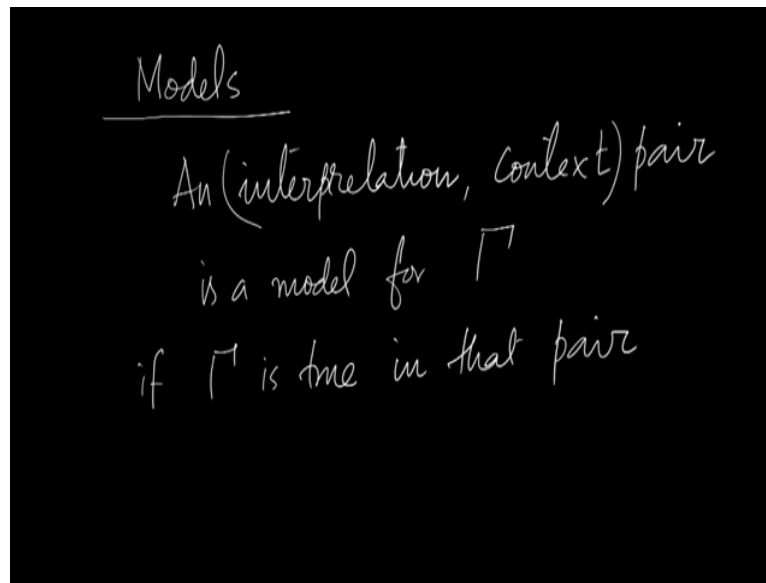 Models
An (interpretation, context) pair
is a model for Γ
if Γ is true in that pair